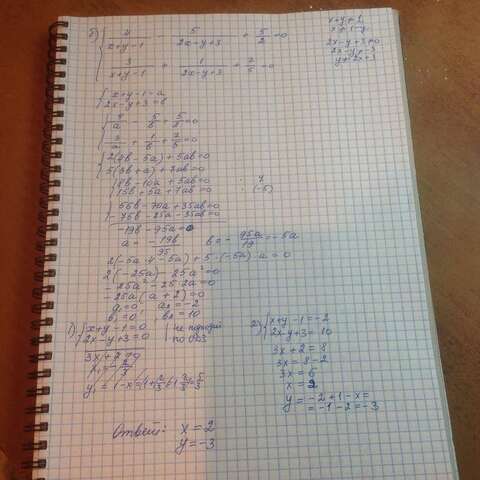 б) { 4/(x+y-1) - 5/(2x-y+3) + 5/2 = 0
3/(x+y-1) + 1/(2x-y+3) + 7/5 = 0
{ x+y-1=a
2x-y+3=b
{ 4/a - 5/b + 5/2 = 0
3/a + 1/b + 7/5 = 0
{ 2(4b-5a)+5ab=0
5(3b+a)+7ab=0
{ 8b-10a+5ab=0 · 7
15b+5a+7ab=0 · (-5)
{ 56b-70a+35ab=0
-75b-25a-35ab=0
-19b-95a=0
a = -19b/95 b = -95a/19 = -5a
2(-5a·4-5a)+5·(-5a)·a=0
2(-25a)-25a²=0
-25a²-25·2a=0
-25a(a+2)=0
a=0; a₂=-2
b=0; b₂=10
1) { x+y-1=0
2x-y+3=0
не подходит
по ОДЗ
3x+2=0
x₁=-2/3
2) { x+y-1=-2
2x-y+3=10
3x+2=8
3x=8-2
3x=6
x=2
y=-2+1-x=
=-1-2=-3
Ответ: x=2
y=-3
2x-y+3≠0
2x-y≠-3